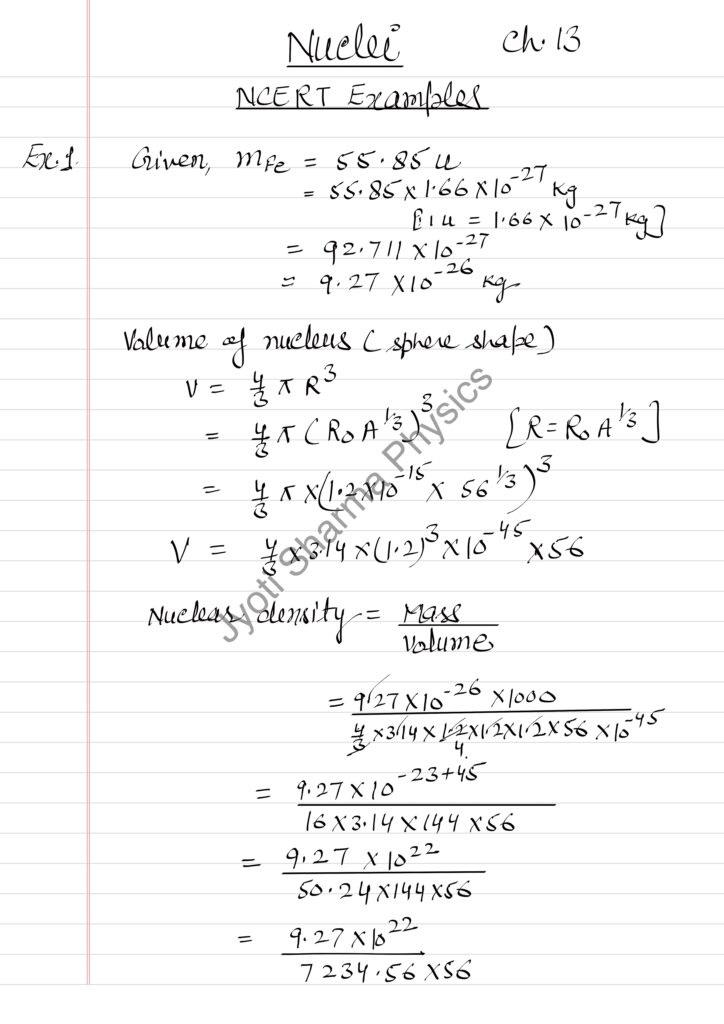 Nuclei Ch. 13
NCERT Examples
Ex.1. Given, mFe = 55.85 u
= 55.85 × 1.66 × 10⁻²⁷ kg
[∵ 1 u = 1.66 × 10⁻²⁷ kg]
= 92.711 × 10⁻²⁷
= 9.27 × 10⁻²⁶ kg
Volume of nucleus (sphere shape)
V = 4/3 π R³
= 4/3 π (R₀ A^1/3)³ [R = R₀ A^1/3]
= 4/3 π × (1.2 × 10⁻¹⁵ × 56^1/3)³
V = 4/3 × 3.14 × (1.2)³ × 10⁻⁴⁵ × 56
Nuclear density = Mass
Volume
= 9.27 × 10⁻²⁶ × 1000
4/3 × 3.14 × 1.2 × 1.2 × 1.2 × 56 × 10⁻⁴⁵
4.
= 9.27 × 10⁻²³⁺⁴⁵
16 × 3.14 × 144 × 56
= 9.27 × 10²²
50.24 × 144 × 56
= 9.27 × 10²²
7234.56 × 56
Jyoti Sharma Physics